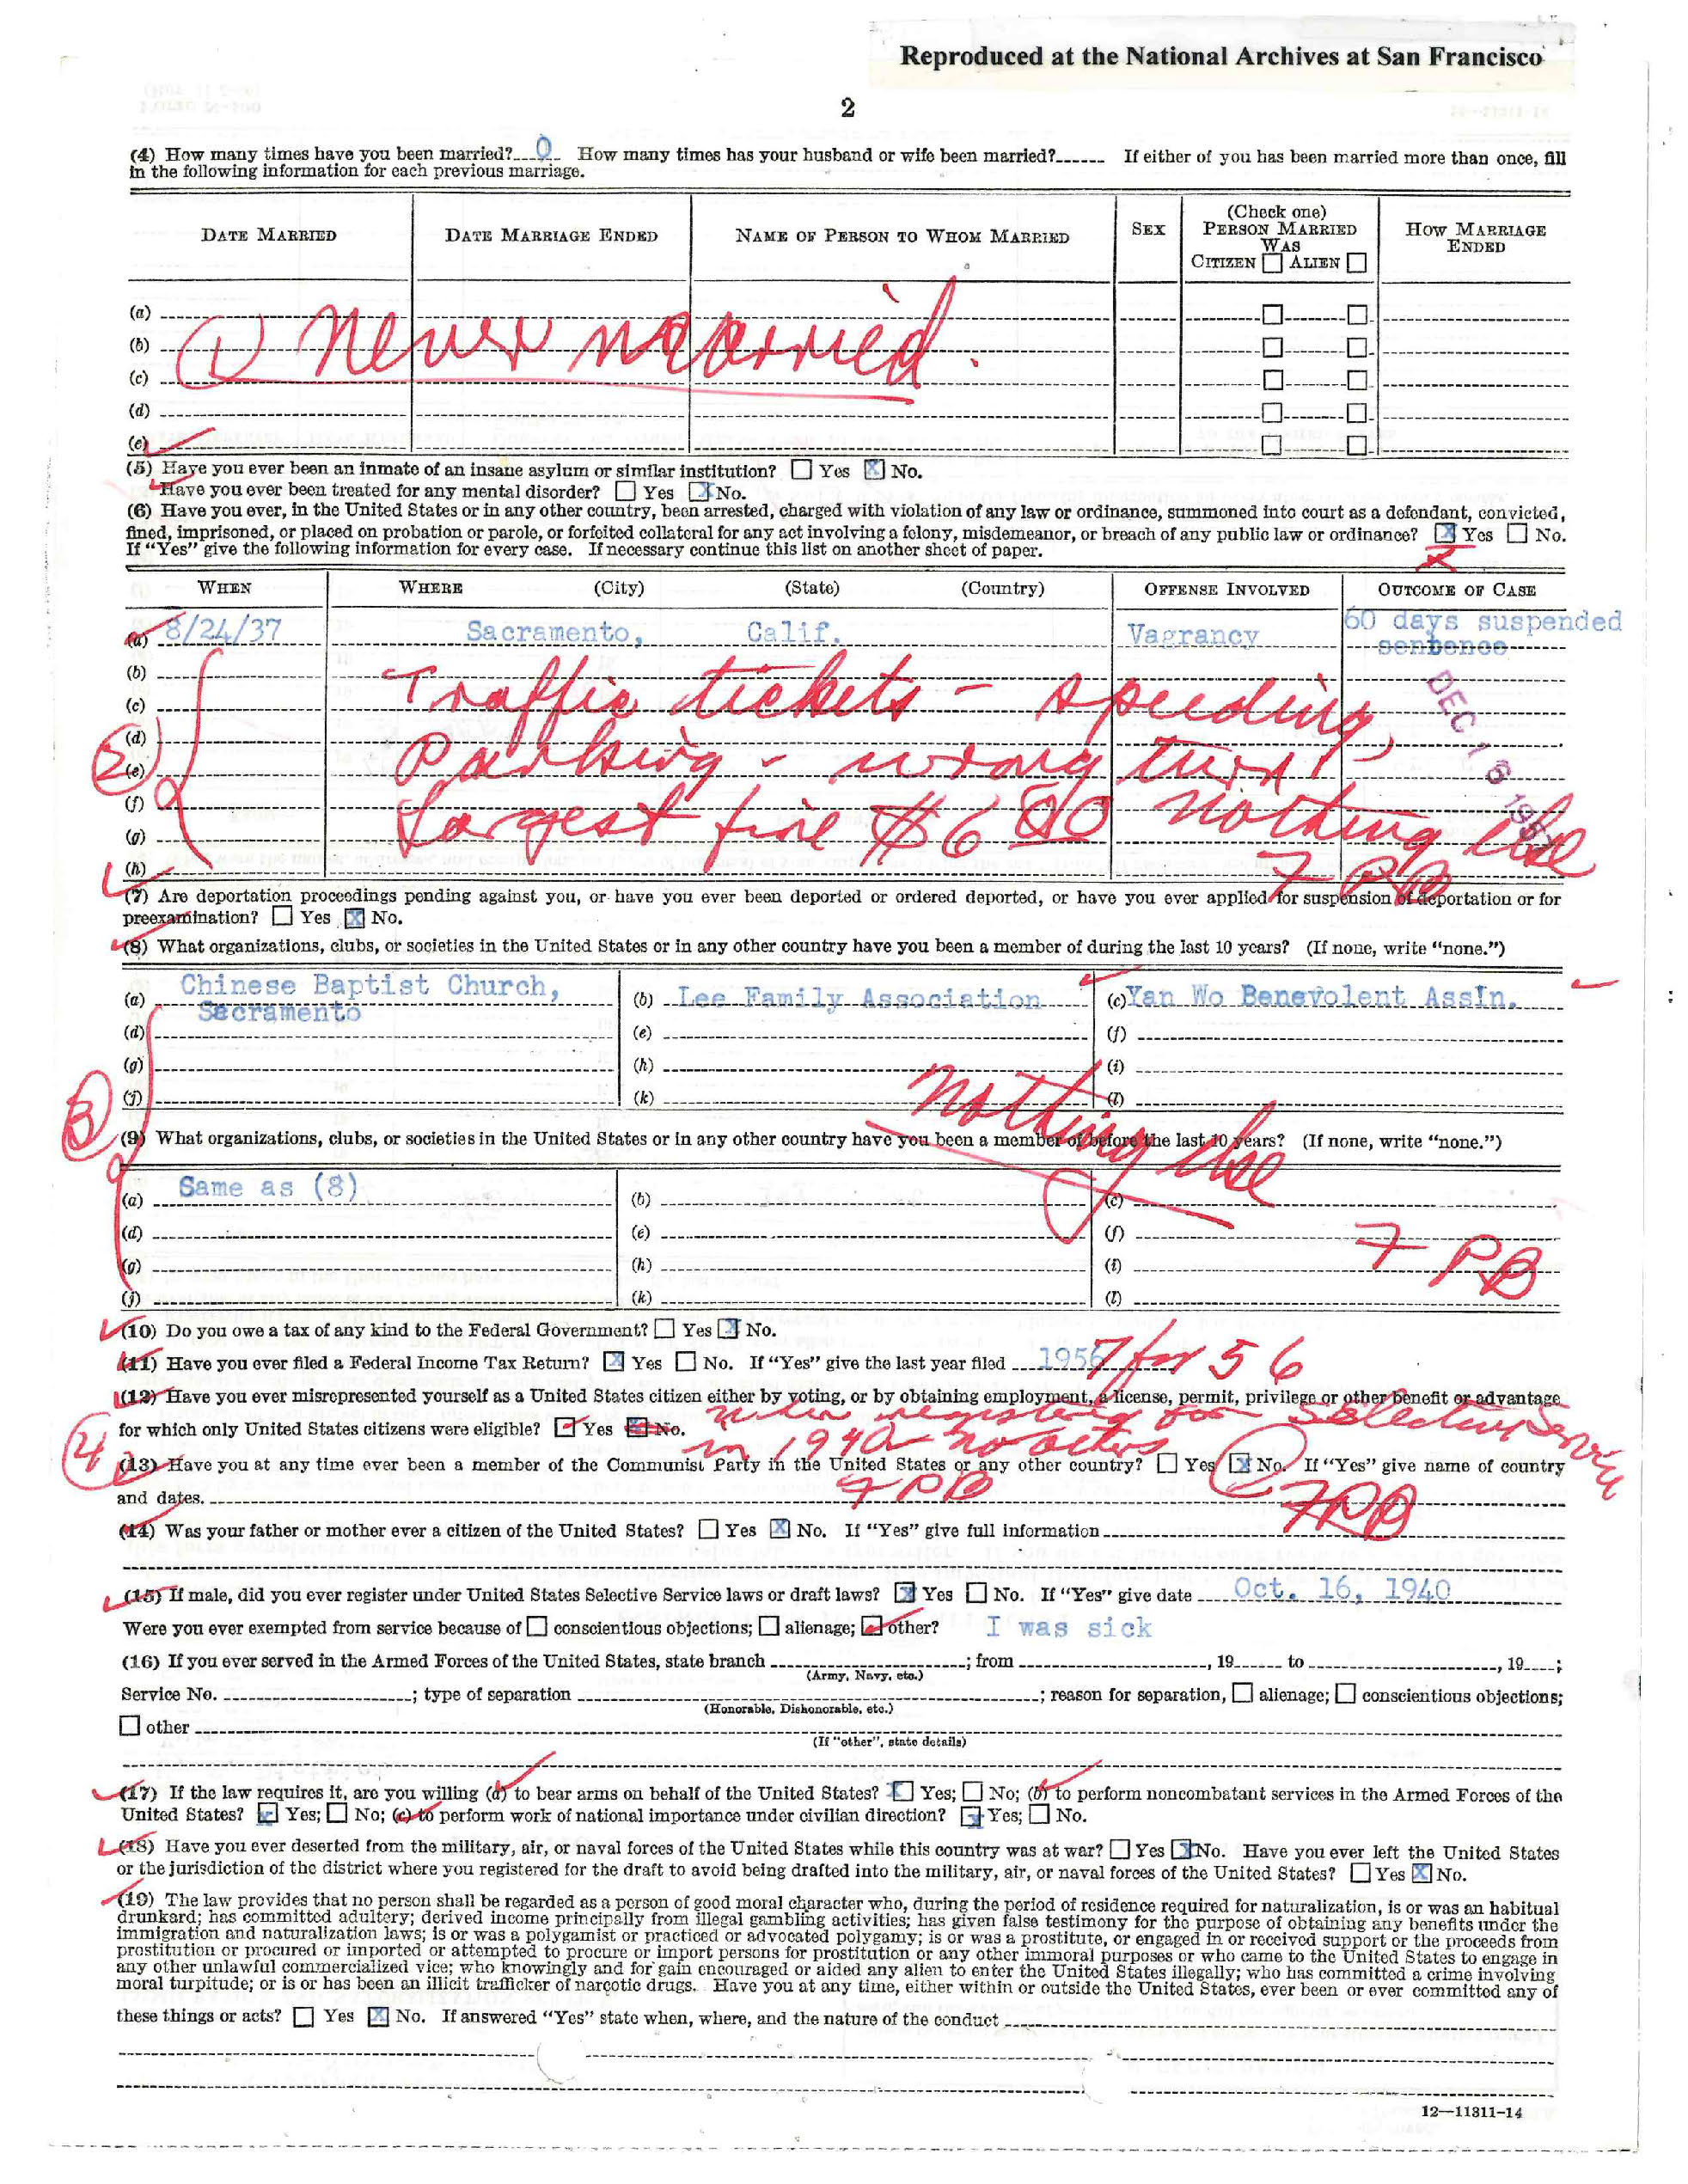 Reproduced at the National Archives at San Francisco
2
(4) How many times have you been married? 0 How many times has your husband or wife been married? If either of you has been married more than once, fill
in the following information for each previous marriage.
DATE MARRIED DATE MARRIAGE ENDED NAME OF PERSON TO WHOM MARRIED SEX (Check one) PERSON MARRIED WAS CITIZEN ☐ ALIEN ☐ HOW MARRIAGE ENDED
(a) ☐ ☐
(b) ☐ ☐
(c) ☐ ☐
(d) ☐ ☐
(e) ☐ ☐
1 Never married.
(5) Have you ever been an inmate of an insane asylum or similar institution? ☐ Yes ☒ No.
Have you ever been treated for any mental disorder? ☐ Yes ☒ No.
(6) Have you ever, in the United States or in any other country, been arrested, charged with violation of any law or ordinance, summoned into court as a defendant, convicted,
fined, imprisoned, or placed on probation or parole, or forfeited collateral for any act involving a felony, misdemeanor, or breach of any public law or ordinance? ☒ Yes ☐ No.
If "Yes" give the following information for every case. If necessary continue this list on another sheet of paper.
WHEN WHERE (City) (State) (Country) OFFENSE INVOLVED OUTCOME OF CASE
(a) 8/24/37 Sacramento, Calif. Vagrancy 60 days suspended
sentence
(b)
(c) Traffic tickets - speeding,
(d)
(e) Parking - wrong turn
(f)
(g) Largest fine $6 00 nothing else
(h)
2
DEC 16 1957
7 PB
(7) Are deportation proceedings pending against you, or have you ever been deported or ordered deported, or have you ever applied for suspension of deportation or for
preexamination? ☐ Yes ☒ No.
(8) What organizations, clubs, or societies in the United States or in any other country have you been a member of during the last 10 years? (If none, write "none.")
(a) Chinese Baptist Church, Sacramento (b) Lee Family Association (c) Yan Wo Benevolent Ass'n.
(d) (e) (f)
(g) (h) (i)
(j) (k) (l)
3
nothing else
(9) What organizations, clubs, or societies in the United States or in any other country have you been a member of before the last 10 years? (If none, write "none.")
(a) Same as (8) (b) (c)
(d) (e) (f)
(g) (h) (i)
(j) (k) (l)
7 PB
(10) Do you owe a tax of any kind to the Federal Government? ☐ Yes ☒ No.
(11) Have you ever filed a Federal Income Tax Return? ☒ Yes ☐ No. If "Yes" give the last year filed 1957 for 56
(12) Have you ever misrepresented yourself as a United States citizen either by voting, or by obtaining employment, a license, permit, privilege or other benefit or advantage
for which only United States citizens were eligible? ☑ Yes ☒ No.
when registering for Selective Service
in 1940 no others
4
7 PB
(13) Have you at any time ever been a member of the Communist Party in the United States or any other country? ☐ Yes ☒ No. If "Yes" give name of country
and dates.
7 PB
(14) Was your father or mother ever a citizen of the United States? ☐ Yes ☒ No. If "Yes" give full information
(15) If male, did you ever register under United States Selective Service laws or draft laws? ☒ Yes ☐ No. If "Yes" give date Oct. 16, 1940
Were you ever exempted from service because of ☐ conscientious objections; ☐ alienage; ☑ other? I was sick
(16) If you ever served in the Armed Forces of the United States, state branch ; from , 19 to , 19 ;
(Army, Navy, etc.)
Service No. ; type of separation ; reason for separation, ☐ alienage; ☐ conscientious objections;
(Honorable, Dishonorable, etc.)
☐ other
(If "other", state details)
(17) If the law requires it, are you willing (a) to bear arms on behalf of the United States? ☒ Yes; ☐ No; (b) to perform noncombatant services in the Armed Forces of the
United States? ☒ Yes; ☐ No; (c) to perform work of national importance under civilian direction? ☒ Yes; ☐ No.
(18) Have you ever deserted from the military, air, or naval forces of the United States while this country was at war? ☐ Yes ☒ No. Have you ever left the United States
or the jurisdiction of the district where you registered for the draft to avoid being drafted into the military, air, or naval forces of the United States? ☐ Yes ☒ No.
(19) The law provides that no person shall be regarded as a person of good moral character who, during the period of residence required for naturalization, is or was an habitual
drunkard; has committed adultery; derived income principally from illegal gambling activities; has given false testimony for the purpose of obtaining any benefits under the
immigration and naturalization laws; is or was a polygamist or practiced or advocated polygamy; is or was a prostitute, or engaged in or received support or the proceeds from
prostitution or procured or imported or attempted to procure or import persons for prostitution or any other immoral purposes or who came to the United States to engage in
any other unlawful commercialized vice; who knowingly and for gain encouraged or aided any alien to enter the United States illegally; who has committed a crime involving
moral turpitude; or is or has been an illicit trafficker of narcotic drugs. Have you at any time, either within or outside the United States, ever been or ever committed any of
these things or acts? ☐ Yes ☒ No. If answered "Yes" state when, where, and the nature of the conduct
12—11311-14